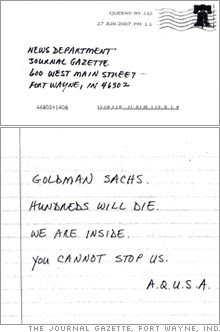 QUEENS NY 113
27 JUN 2007 PM 11
NEWS DEPARTMENT
JOURNAL GAZETTE
600 WEST MAIN STREET
FORT WAYNE, IN 46802
GOLDMAN SACHS.
HUNDREDS WILL DIE.
WE ARE INSIDE.
YOU CANNOT STOP US.
A.Q.U.S.A.
THE JOURNAL GAZETTE, FORT WAYNE, IND.